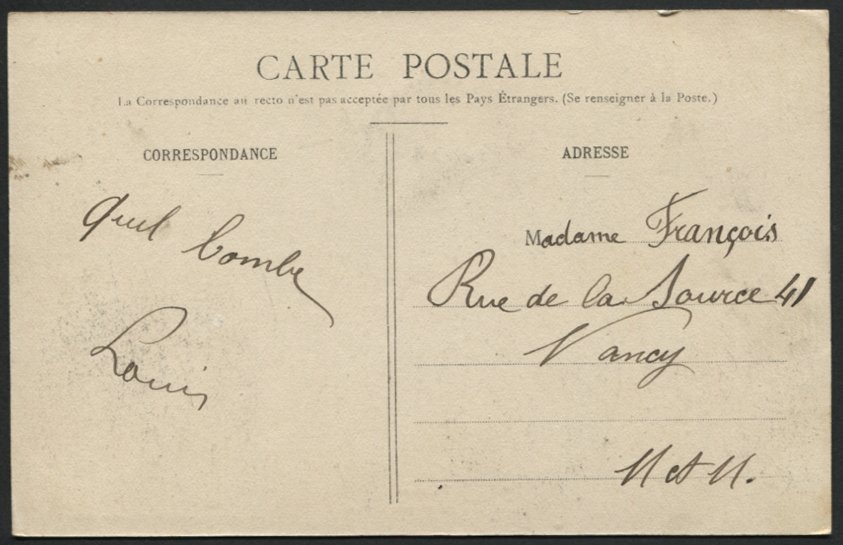 CARTE POSTALE
La Correspondance au recto n'est pas acceptée par tous les Pays Étrangers. (Se renseigner à la Poste.)
CORRESPONDANCE
Quel bombe
Louis
ADRESSE
Madame François
Rue de la Source 41
Nancy
M et M.